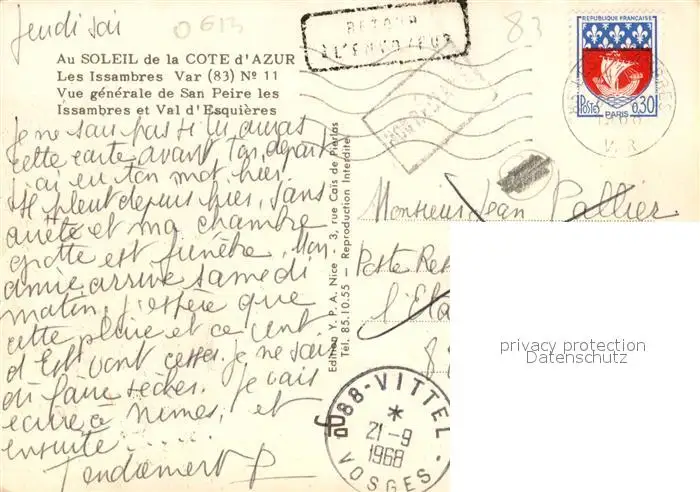 Jeudi soir
Au SOLEIL de la COTE d'AZUR
Les Issambres Var (83) Nº 11
Vue générale de San Peire les
Issambres et Val d'Esquières
Je ne sais pas si tu auras
cette carte avant ton départ
j'ai eu ton mot hier.
Il pleut depuis hier, sans
arrêt et ma chambre
grotte est funèbre. Mon
amie arrive samedi
matin, j'espère que
cette pluie et ce vent
d'Est vont cesser. Je ne sais
où faire sécher. Je vais
écrire à Nîmes, et
ensuite ......
Tendrement P
Edition Y. P. A. Nice - 3, rue Cais de Pierlas
Tél. 85.10.55 — Reproduction Interdite
RETOUR
A L'ENVOYEUR
83
REPUBLIQUE FRANÇAISE
POSTES
PARIS
0,30
VAR
Monsieur Jean Pallier
Poste Res
8
privacy protection
Datenschutz
88-VITTEL
*
21-9
1968
VOSGES